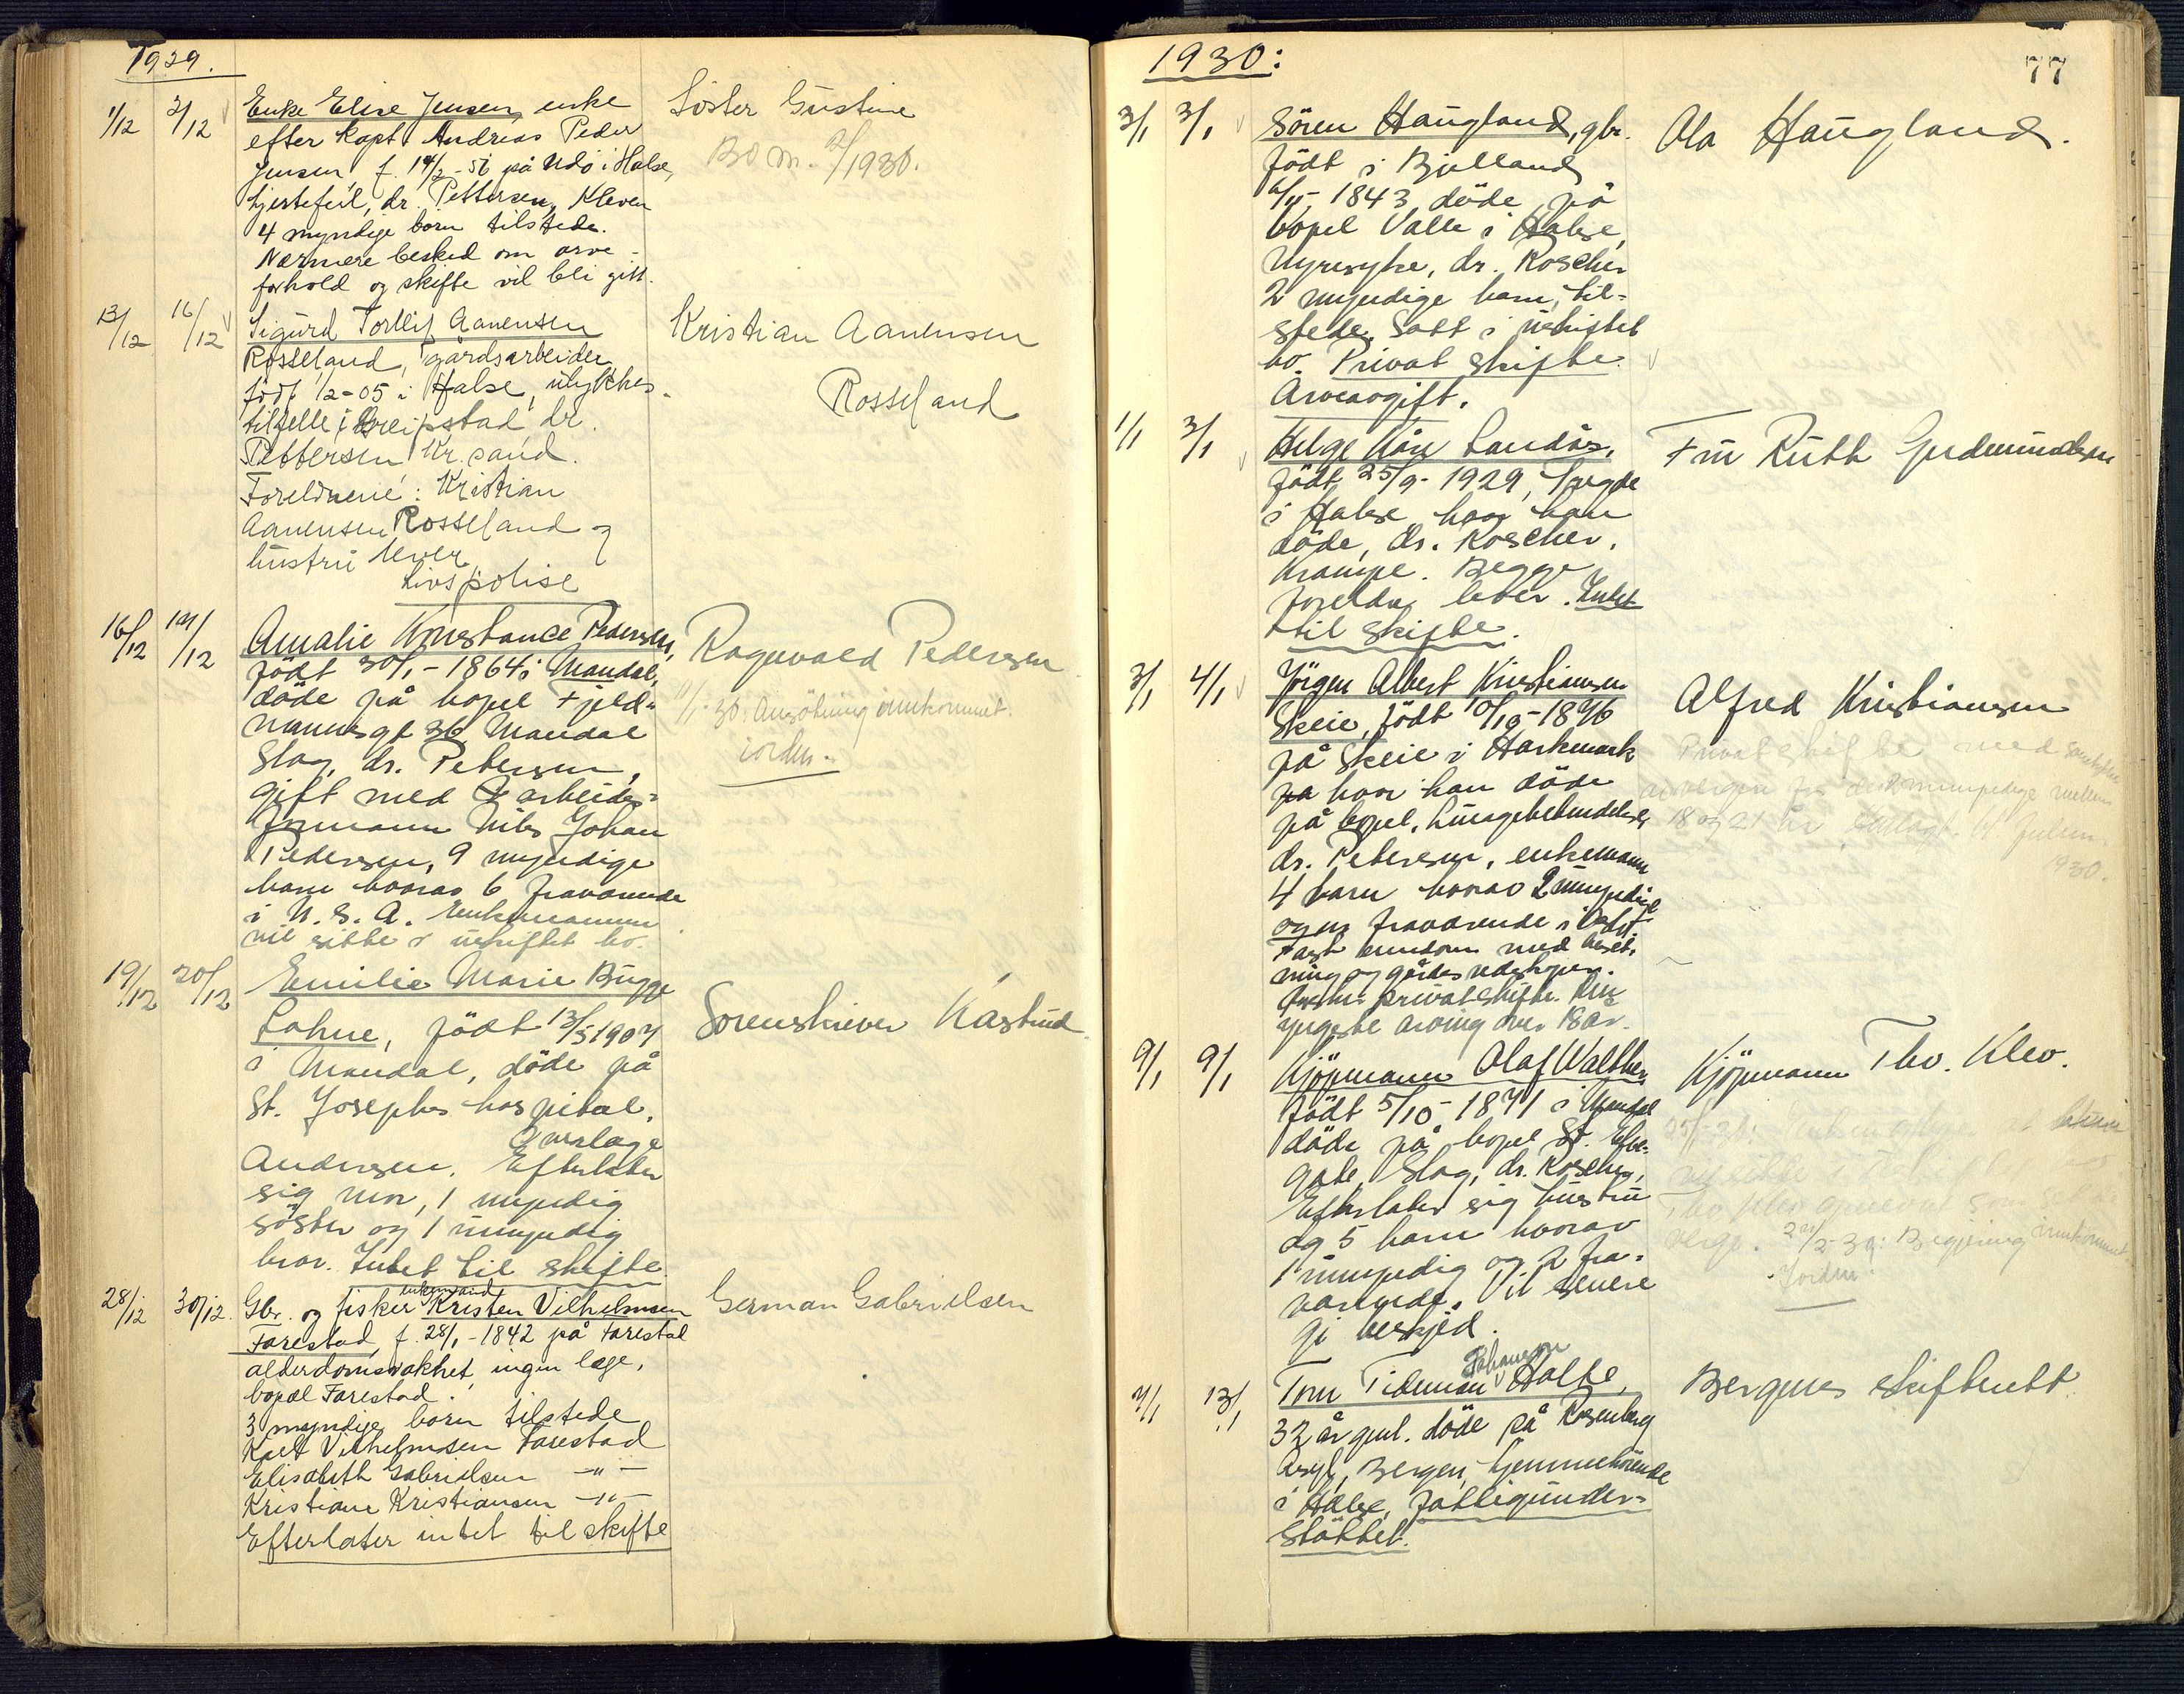 1929.
1/12 3/12 Enke Elise Jensen, enke
efter kapt. Andreas Peder
Jensen f. 14/2-56 på Udö i Halse,
hjertefeil, dr. Pettersen, Kleven
4 myndige börn tilstede.
Nærmere besked om arve-
forhold og skifte vil bli gitt.
Söster Gustine
Bom. 2/1 1930.
13/12 16/12 Sigurd Torleif Aanensen
Rosseland, gårdsarbeider
födt 1/2-05 i Halse, ulykkes-
tilfelle i Greipstad dr.
Pettersen Kr.sand.
Foreldrene: Kristian
Aanensen Rosseland og
hustru lever
Livspolise
Kristian Aanensen
Rosseland
16/12 17/12 Amalie Konstance Pedersen,
födt 30/1-1864 i Mandal,
döde på bopel Fjeld-
mannsgt 36 Mandal
Slag, dr. Petersen,
gift med arbeids-
formann Nils Johan
Pedersen, 9 myndige
barn hvorav 6 fraværende
i U.S.A. Enkemannen
vil sitte i uskiftet bo.
Ragnvald Pedersen
11/1-30. Ansökning innkommet.
iorden.
19/12 20/12 Emilie Marie Bugge
Lohne, födt 13/5 1907
i Mandal, döde på
St. Josephs hospital,
Overlæge
Andersen. Efterlater
sig mor, 1 myndig
söster og 1 umyndig
bror. Intet til skifte.
Sorenskriver Kastrud
28/12 30/12. Gbr. og fisker enkemand Kristen Vilhelmsen
Farestad, f. 28/1-1842 på Farestad
alderdomsvakhet, ingen læge,
bopæl Farestad.
3 myndige börn tilstede
Karl Vilhelmsen Farestad
Elisabeth Gabrielsen -"-
Kristiane Kristiansen -"-
Efterlater intet til skifte
German Gabrielsen
1930:
77
3/1 3/1 Sören Haugland, gbr.
födt i Bjelland
6/11-1843, döde på
bopel Valle i Halse,
Nyresyke, dr. Roscher
2 myndige barn, til-
stede. Satt i uskiftet
bo. Privat skifte.
Arveavgift.
Ola Haugland.
1/1 3/1 Helge Kåre Landås,
födt 25/9-1929,
i Halse hvor han
döde, dr. Roscher.
Krampe. Begge
foreldre lever. Intet
til skifte.
Fru Ruth Gudmundsen
3/1 4/1 Jörgen Albert Kristiansen
Skeie, födt /10-1876
på Skeie i Harkmark
pa hvor han döde
på bopel, Lungebetendelse,
dr. Petersen, enkemann
4 barn hvorav 2 umyndige
og en fraværende i
Fast eiendom med beset-
ning og gårdsredskaper.
privat skifte. Den
yngste arving over 18 år.
Alfred Kristiansen
Privat skifte med samtykke
av vergen for de 2 umyndige mellem
18 og 21 år.
1930.
9/1 9/1 Kjöpmann Olaf Walther,
födt 5/10-1871 i Mandal
döde på bopel St. Elve-
gate, Slag, dr. Roscher,
Efterlater sig hustru
og 5 barn hvorav
1 umyndig og 2 fra-
værende. Vil senere
gi beskjed.
Kjöpmann Tho. Klev.
Tho Klev opnevnt som
verge. 2-30: Begjæring innkommet
Iorden.
7/1 13/1 Tom Tidemsen Johansen Halse,
32 år gml. döde på Rosenberg
Asyl, Bergen, hjemmehörende
i Halse, fattigunder-
støttet.
Bergens skifterett.